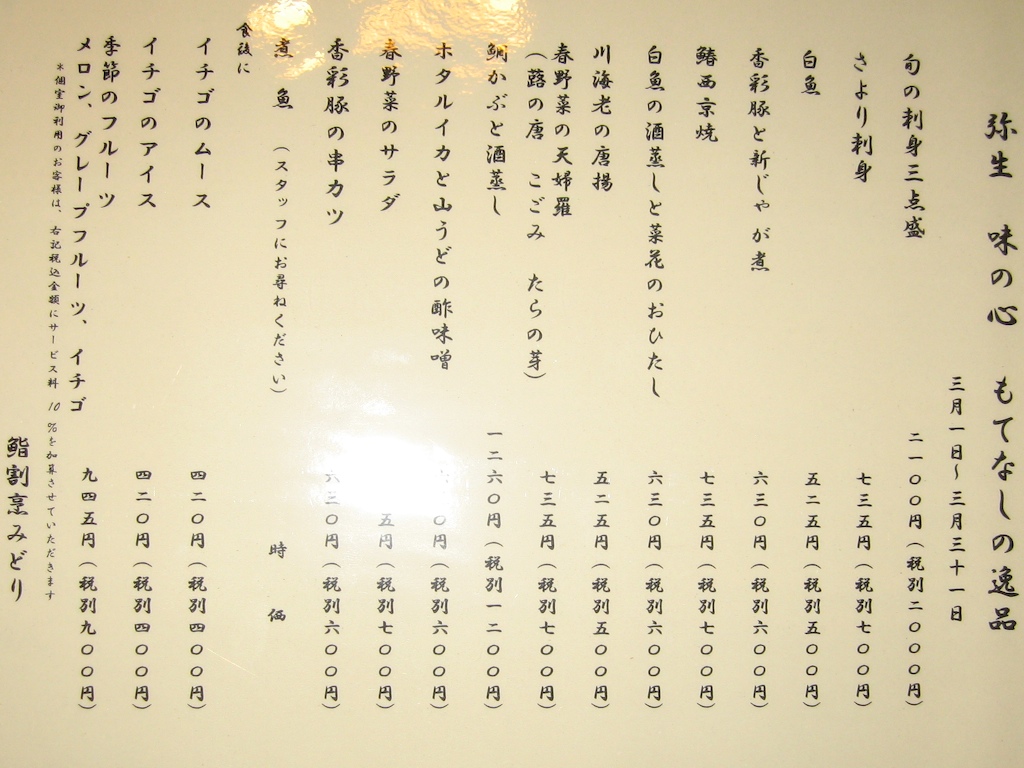 弥生　味の心　もてなしの逸品
三月一日～三月三十一日
旬の刺身三点盛　二一〇〇円（税別二〇〇〇円）
さより刺身　七三五円（税別七〇〇円）
白魚　五二五円（税別五〇〇円）
香彩豚と新じゃが煮　六三〇円（税別六〇〇円）
鰆西京焼　七三五円（税別七〇〇円）
白魚の酒蒸しと菜花のおひたし　六三〇円（税別六〇〇円）
川海老の唐揚　五二五円（税別五〇〇円）
春野菜の天婦羅
（蕗の唐　こごみ　たらの芽）　七三五円（税別七〇〇円）
鯛かぶと酒蒸し　一二六〇円（税別一二〇〇円）
ホタルイカと山うどの酢味噌　〇円（税別六〇〇円）
春野菜のサラダ　五円（税別七〇〇円）
香彩豚の串カツ　六三〇円（税別六〇〇円）
煮魚　（スタッフにお尋ねください）　時価
食後に
イチゴのムース　四二〇円（税別四〇〇円）
イチゴのアイス　四二〇円（税別四〇〇円）
季節のフルーツ
メロン、グレープフルーツ、イチゴ　九四五円（税別九〇〇円）
＊個室御利用のお客様は、右記税込金額にサービス料10％を加算させていただきます
鮨割烹みどり